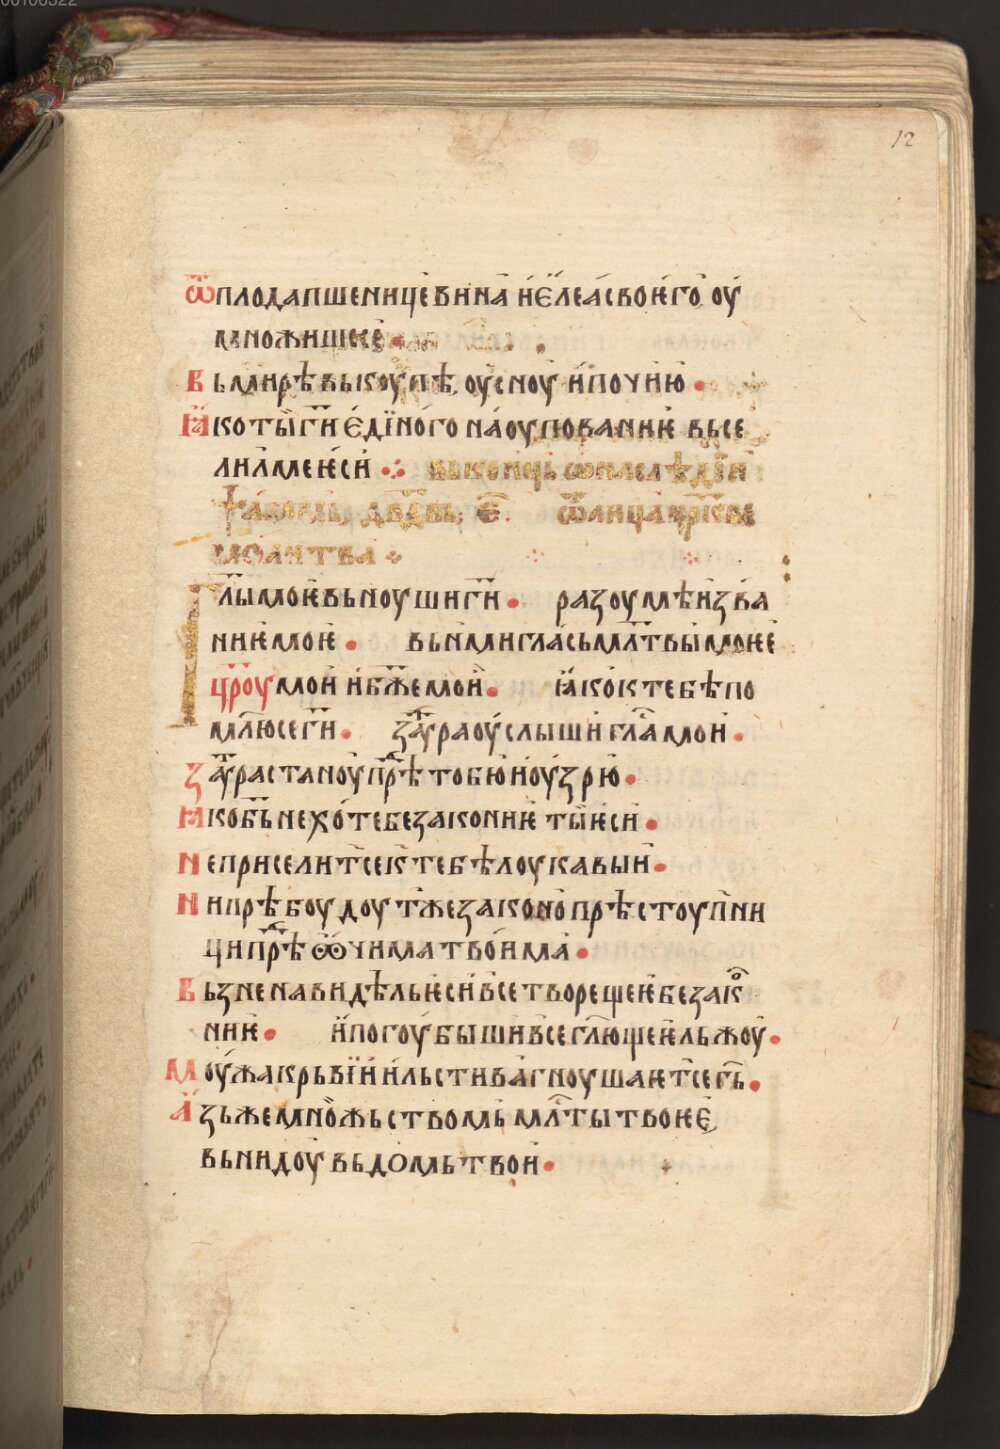 12
ѿплода пшенице вина и елеа своѥго оу
множише се
Вь мирѣ вькоупѣ оусноу и почию
Ꙗко ты ги єдіного на оупованиѥ высе
лил ме ѥси
ѱаломь двдвь
молитва
Глы моѥ вьноуши ги разоумѣи зва
ниѥ моѥ вьнми гласьмлтвы моѥ
цроу мои и бже мои ꙗко к тебѣ по
млюсе ги заутра оуслыши гла мои
Заутра станоу прѣ тобою и оузрю
Ꙗко бь не хоте безакониѥ ты ѥси
Не приселитсе к тебѣ лоукавыи
Ни прѣбоудоут же законопрѣстоупни
ци прѣ ѻчима твоима
Вьзненавидѣль ѥси все творещеѥ безако
ниѥ и погоубыши все глющеѥ льжоу
Моужа крьвіи и льстива гноушаѥтсе гь
Азь же множьством млты твоѥ
вьнидоу вь домь твои